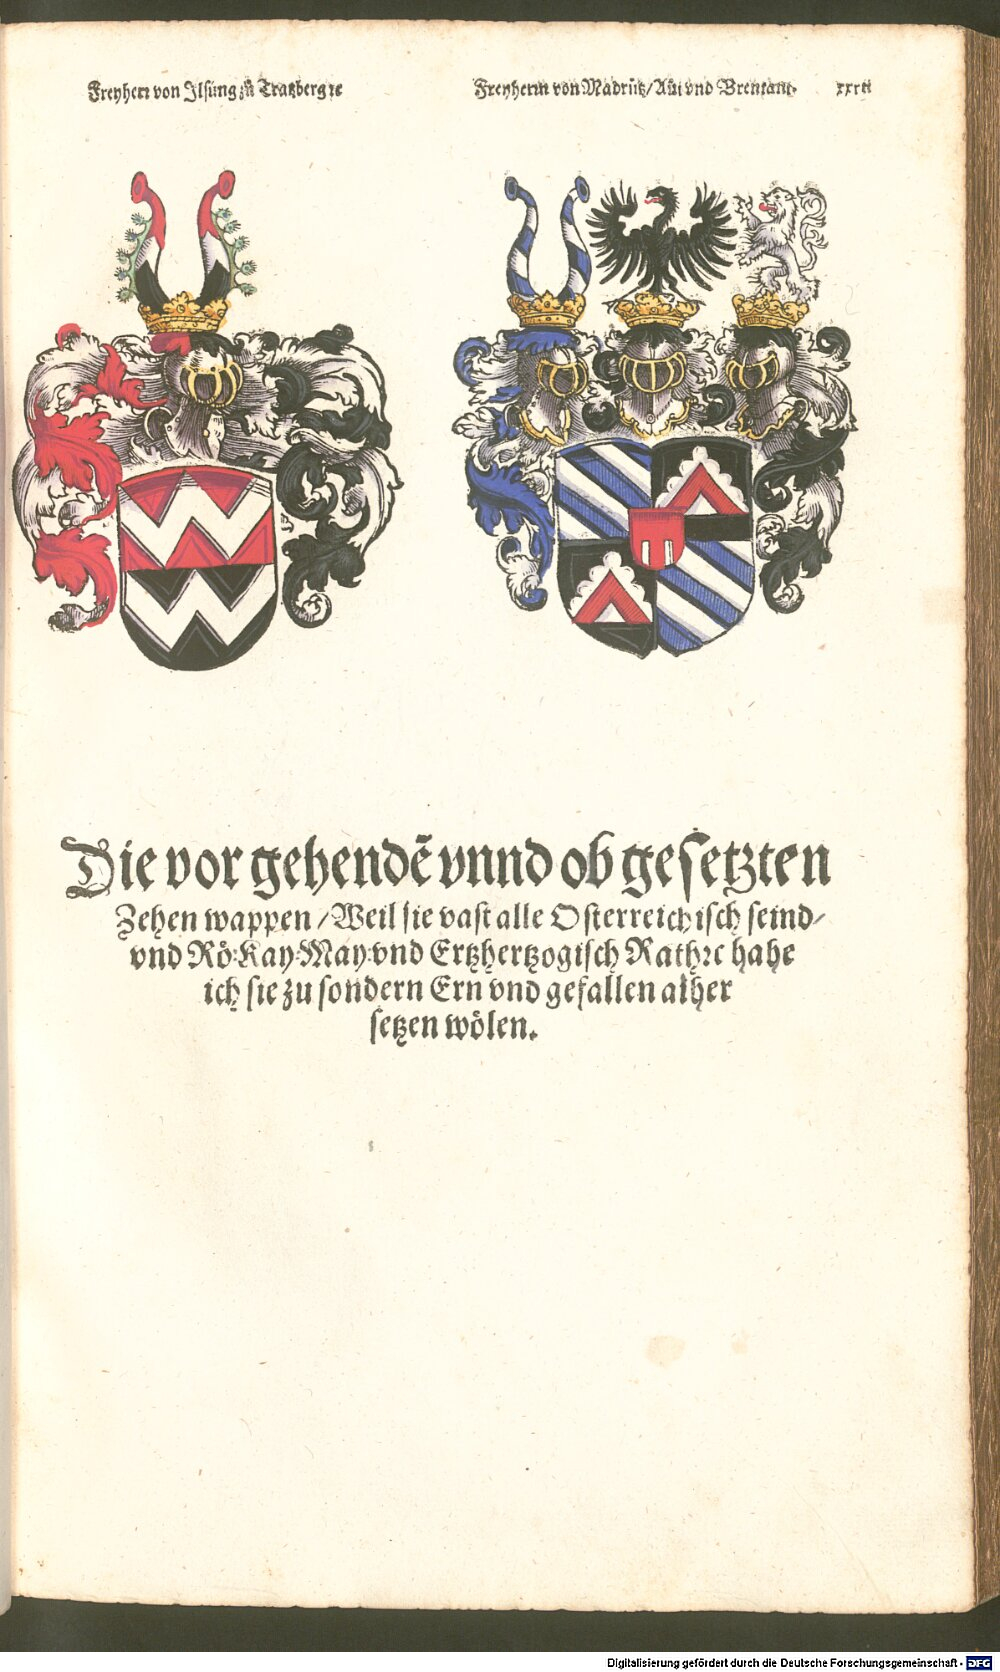 Freyherr von Ilsung zů Tratzberg ꝛc
Freyherrn von Madrutz / Aui vnd Brentani.
xxxii
Die vor gehendẽ vnnd ob gesetzten
Zehen wappen / Weil sie vast alle Osterreichisch seind /
vnd Rö: Kay: May: vnd Ertzhertzogisch Rath ꝛc habe
ich sie zu sondern Ern vnd gefallen alher
setzen wölen.
Digitalisierung gefördert durch die Deutsche Forschungsgemeinschaft - DFG